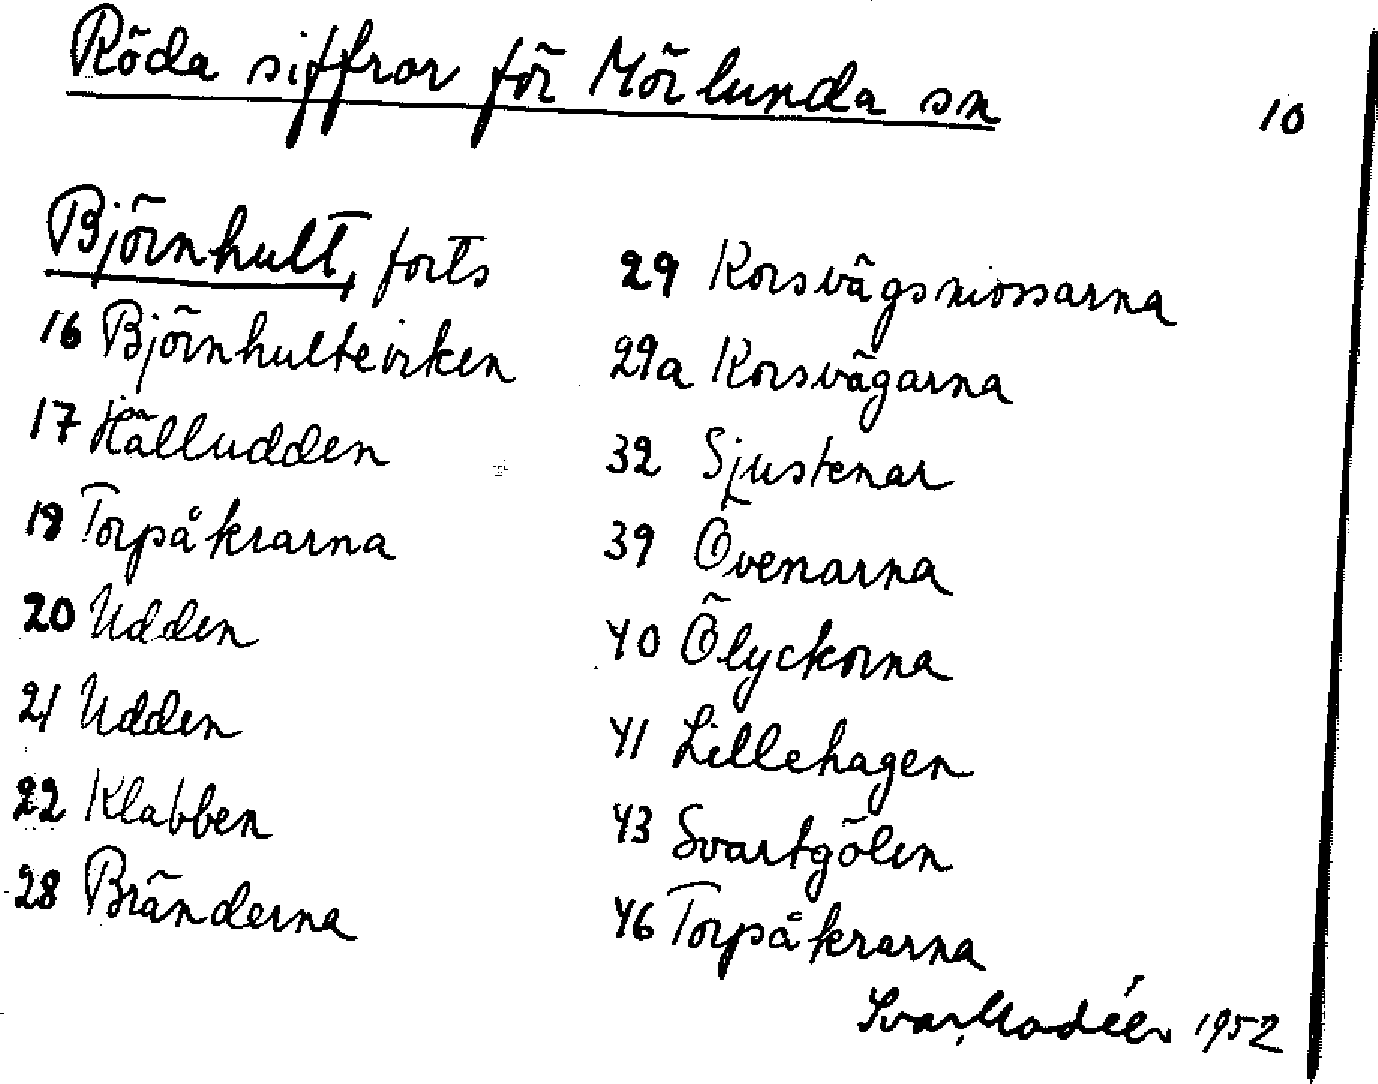 Röda siffror för Mörlunda sn
10
Björnhult, forts
16 Björnhultevirken
17 Hälludden
19 Torpåkrarna
20 Udden
21 Udden
22 Klabben
28 Bränderna
29 Korsvägsmossarna
29a Korsvägarna
32 Sjustenar
39 Övenarna
40 Ölyckorna
41 Lillehagen
43 Svartgölen
46 Torpåkrarna
Ivar Modéer 1952